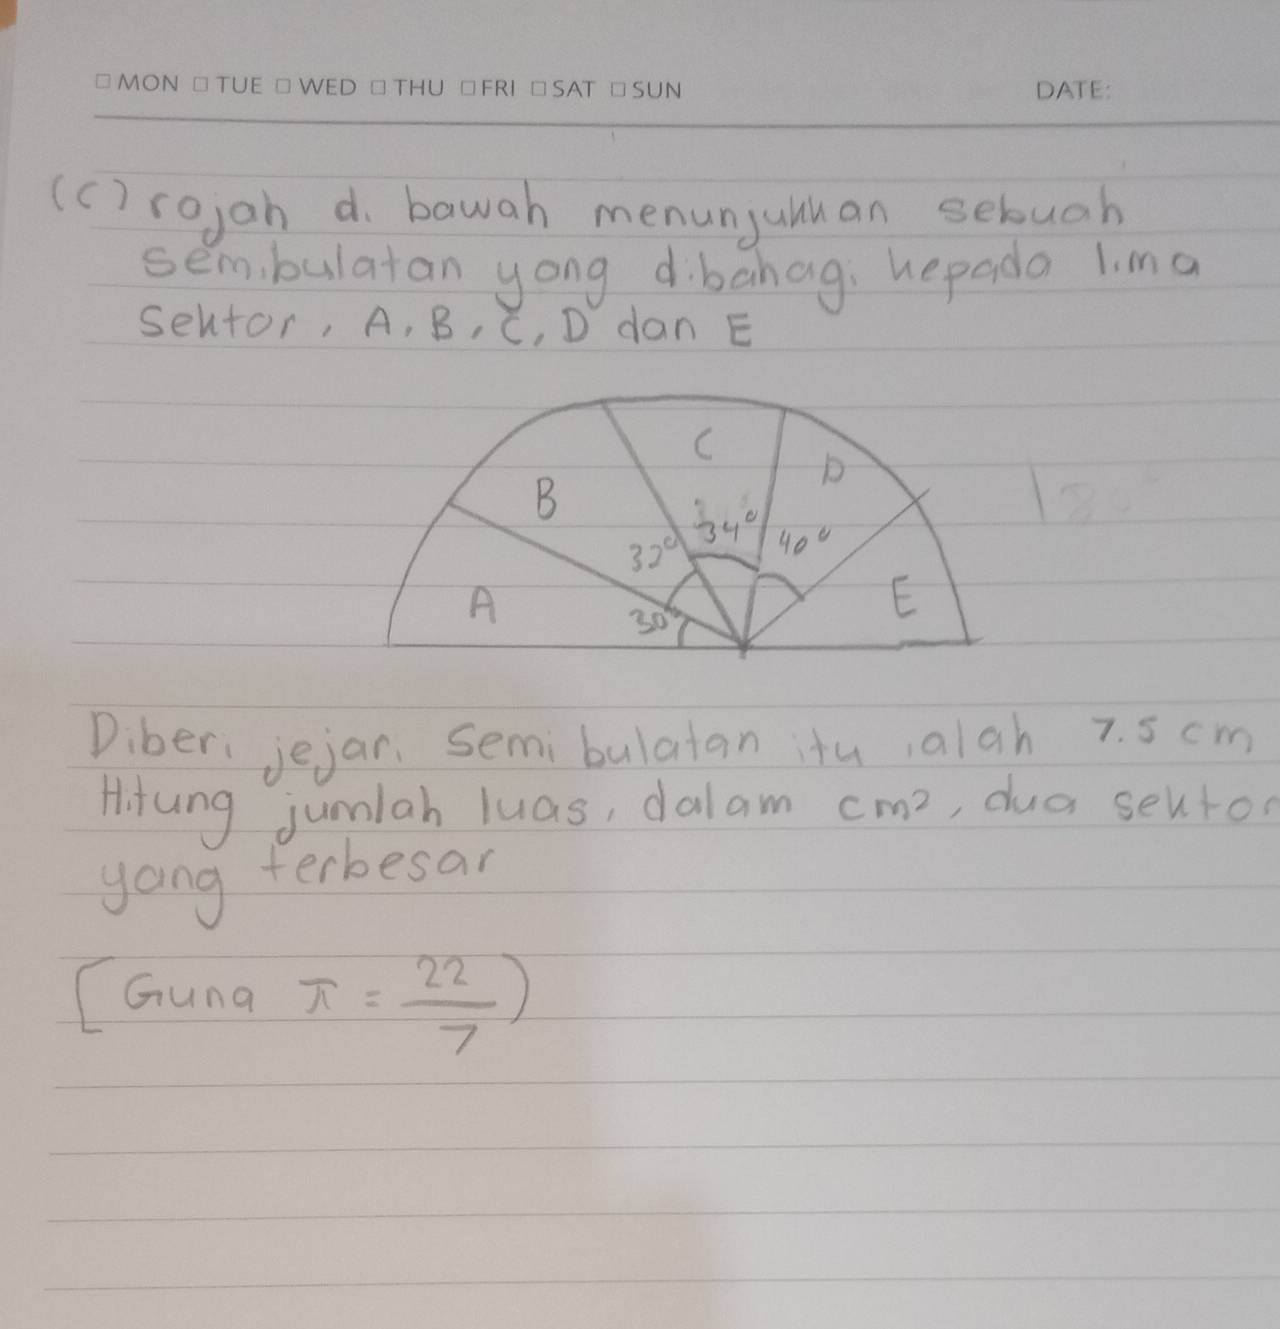 MON TUE WED THU FRI SAT SUN DATE:
(c) rajah di bawah menunjukkan sebuah
semibulatan yang dibahagi kepada lima
sektor, A, B, C, D dan E
C
D
B
34°
40°
32°
A
E
30°
Diberi jejari semi bulatan itu ialah 7.5 cm
Hitung jumlah luas, dalam cm², dua sektor
yang terbesar
[Guna π = 22/7)